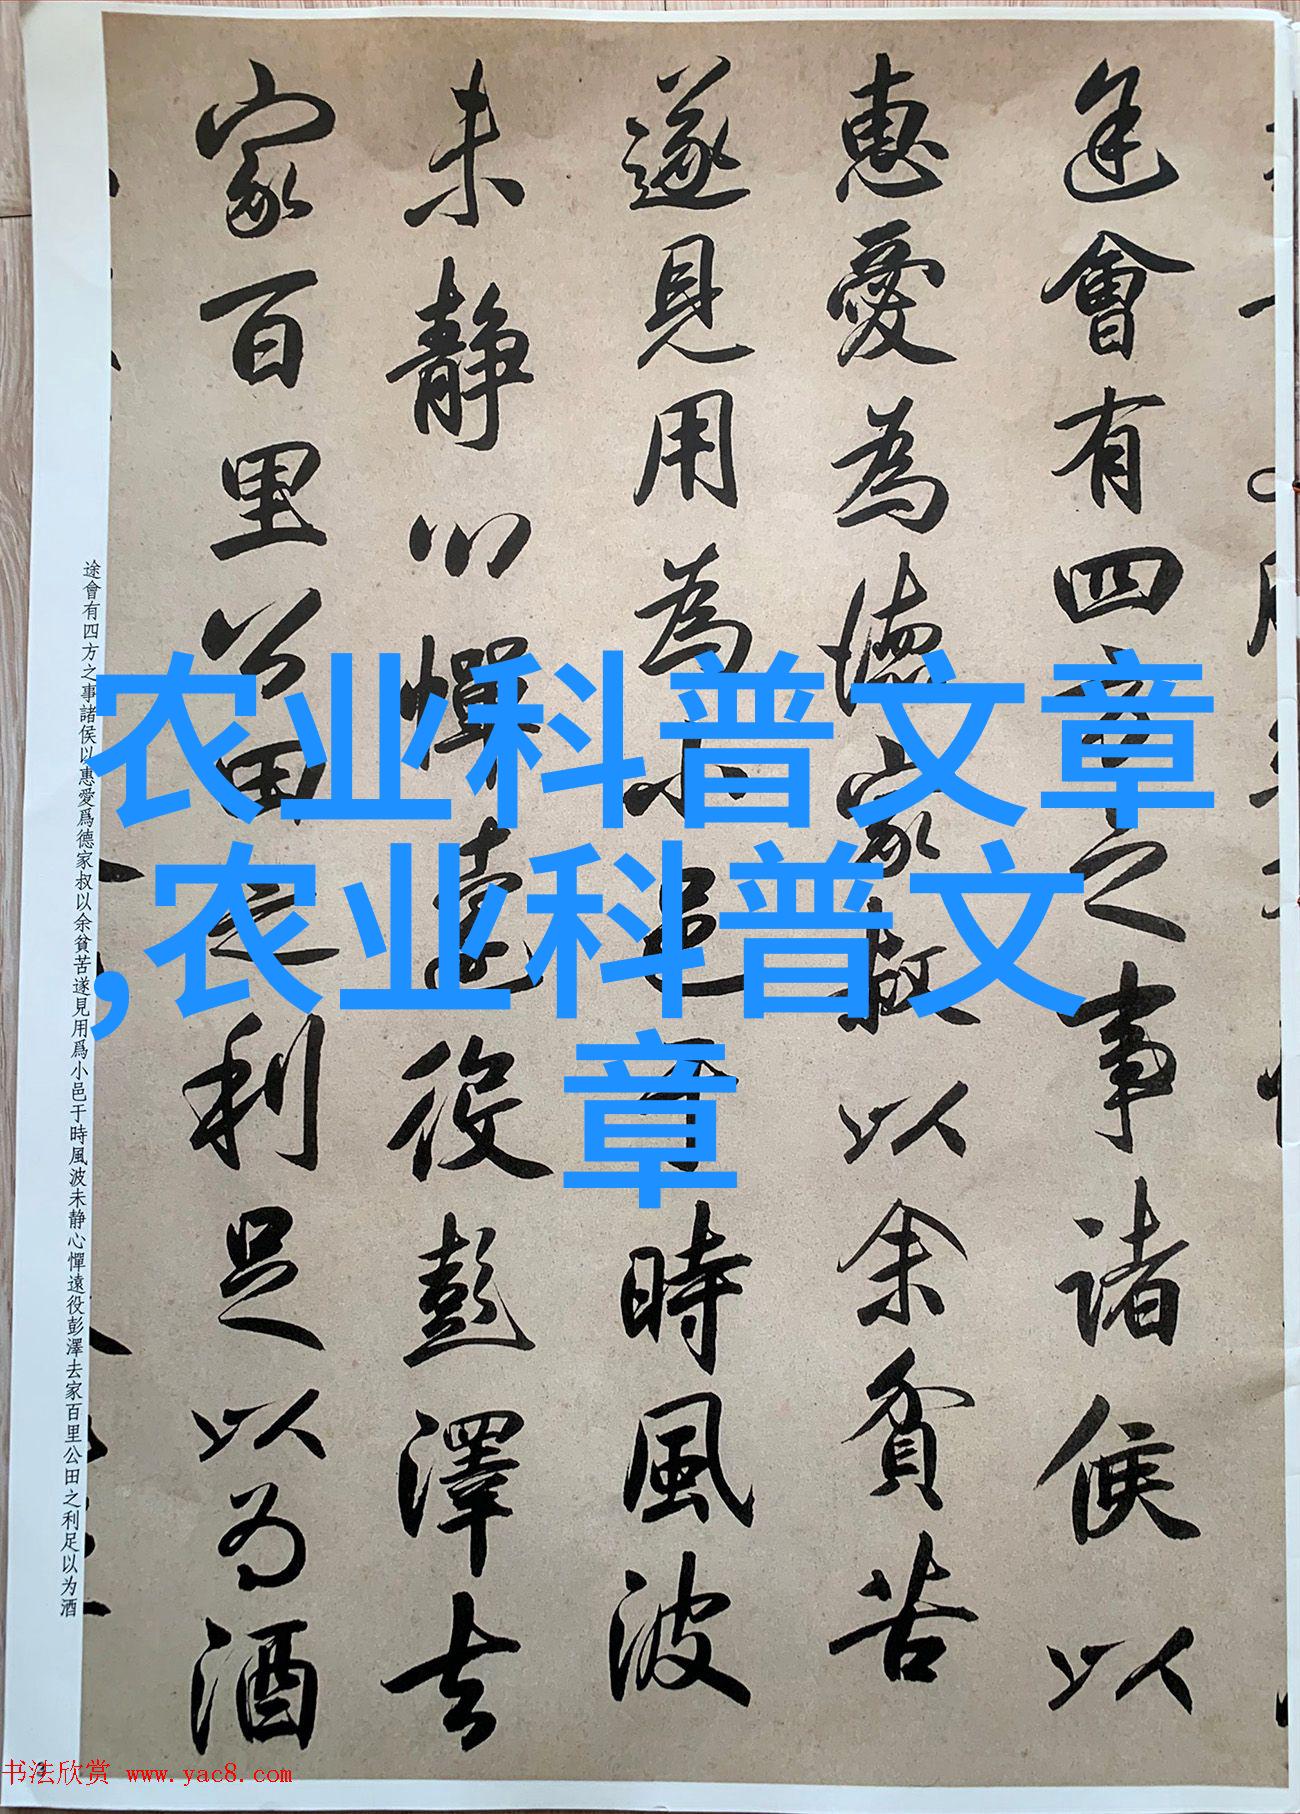 途會有四方之事諸侯以
惠愛為德家叔以余貧苦
遂見用為小邑于時風波
未静心憚遠役彭澤去
家百里公田之利足以为酒
途會有四方之事諸侯以惠愛爲德家叔以余貧苦遂見用爲小邑于時風波未静心憚遠役彭澤去家百里公田之利足以为酒
农业科普文章
,农业科普文
章
3
书法欣赏 www.yac8.com